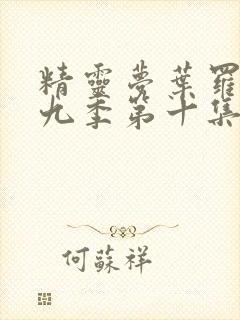 精靈夢葉羅
九季第十集
何蘇祥